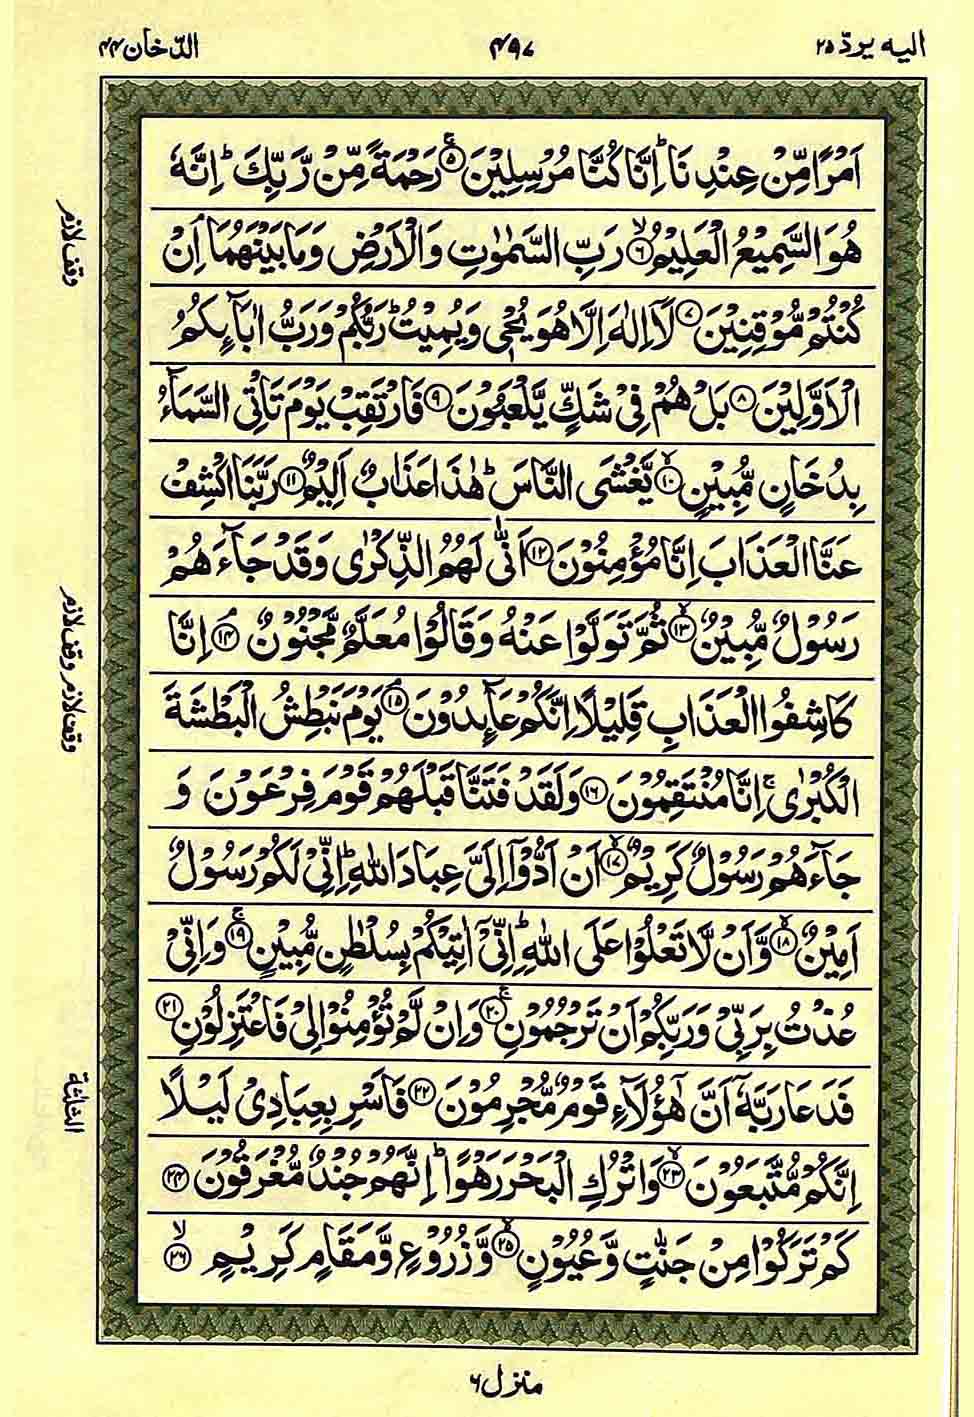 الیه یردّ ۲۵
۴۹۷
الدّخان ۴۴
اَمْرًا مِّنْ عِنْدِنَا ؕ اِنَّا كُنَّا مُرْسِلِیْنَ ۚ﴿۵﴾ رَحْمَةً مِّنْ رَّبِّكَ ؕ اِنَّهٗ
هُوَ السَّمِیْعُ الْعَلِیْمُ ۙ﴿۶﴾ رَبِّ السَّمٰوٰتِ وَالْاَرْضِ وَمَا بَیْنَهُمَا ۘ اِنْ
كُنْتُمْ مُّوْقِنِیْنَ ﴿۷﴾ لَاۤ اِلٰهَ اِلَّا هُوَ یُحْیٖ وَیُمِیْتُ ؕ رَبُّكُمْ وَرَبُّ اٰبَآىِٕكُمُ
الْاَوَّلِیْنَ ﴿۸﴾ بَلْ هُمْ فِیْ شَكٍّ یَّلْعَبُوْنَ ﴿۹﴾ فَارْتَقِبْ یَوْمَ تَاْتِی السَّمَآءُ
بِدُخَانٍ مُّبِیْنٍ ۙ﴿۱۰﴾ یَّغْشَی النَّاسَ ؕ هٰذَا عَذَابٌ اَلِیْمٌ ﴿۱۱﴾ رَبَّنَا اكْشِفْ
عَنَّا الْعَذَابَ اِنَّا مُؤْمِنُوْنَ ﴿۱۲﴾ اَنّٰی لَهُمُ الذِّكْرٰی وَقَدْ جَآءَهُمْ
رَسُوْلٌ مُّبِیْنٌ ۙ﴿۱۳﴾ ثُمَّ تَوَلَّوْا عَنْهُ وَقَالُوْا مُعَلَّمٌ مَّجْنُوْنٌ ۘ﴿۱۴﴾ اِنَّا
كَاشِفُوا الْعَذَابِ قَلِیْلًا اِنَّكُمْ عَآىِٕدُوْنَ ۘ﴿۱۵﴾ یَوْمَ نَبْطِشُ الْبَطْشَةَ
الْكُبْرٰی ۚ اِنَّا مُنْتَقِمُوْنَ ﴿۱۶﴾ وَلَقَدْ فَتَنَّا قَبْلَهُمْ قَوْمَ فِرْعَوْنَ وَ
جَآءَهُمْ رَسُوْلٌ كَرِیْمٌ ۙ﴿۱۷﴾ اَنْ اَدُّوْۤا اِلَیَّ عِبَادَ اللّٰهِ ؕ اِنِّیْ لَكُمْ رَسُوْلٌ
اَمِیْنٌ ۙ﴿۱۸﴾ وَّاَنْ لَّا تَعْلُوْا عَلَی اللّٰهِ ؕ اِنِّیْۤ اٰتِیْكُمْ بِسُلْطٰنٍ مُّبِیْنٍ ۚ﴿۱۹﴾ وَاِنِّیْ
عُذْتُ بِرَبِّیْ وَرَبِّكُمْ اَنْ تَرْجُمُوْنِ ۚ﴿۲۰﴾ وَاِنْ لَّمْ تُؤْمِنُوْا لِیْ فَاعْتَزِلُوْنِ ﴿۲۱﴾
فَدَعَا رَبَّهٗۤ اَنَّ هٰۤؤُلَآءِ قَوْمٌ مُّجْرِمُوْنَ ﴿۲۲﴾ فَاَسْرِ بِعِبَادِیْ لَیْلًا
اِنَّكُمْ مُّتَّبَعُوْنَ ۙ﴿۲۳﴾ وَاتْرُكِ الْبَحْرَ رَهْوًا ؕ اِنَّهُمْ جُنْدٌ مُّغْرَقُوْنَ ﴿۲۴﴾
كَمْ تَرَكُوْا مِنْ جَنّٰتٍ وَّعُیُوْنٍ ۙ﴿۲۵﴾ وَّزُرُوْعٍ وَّمَقَامٍ كَرِیْمٍ ۙ﴿۲۶﴾
وقف لازم
وقف لازم وقف لازم
الثلثة
منزل ۶